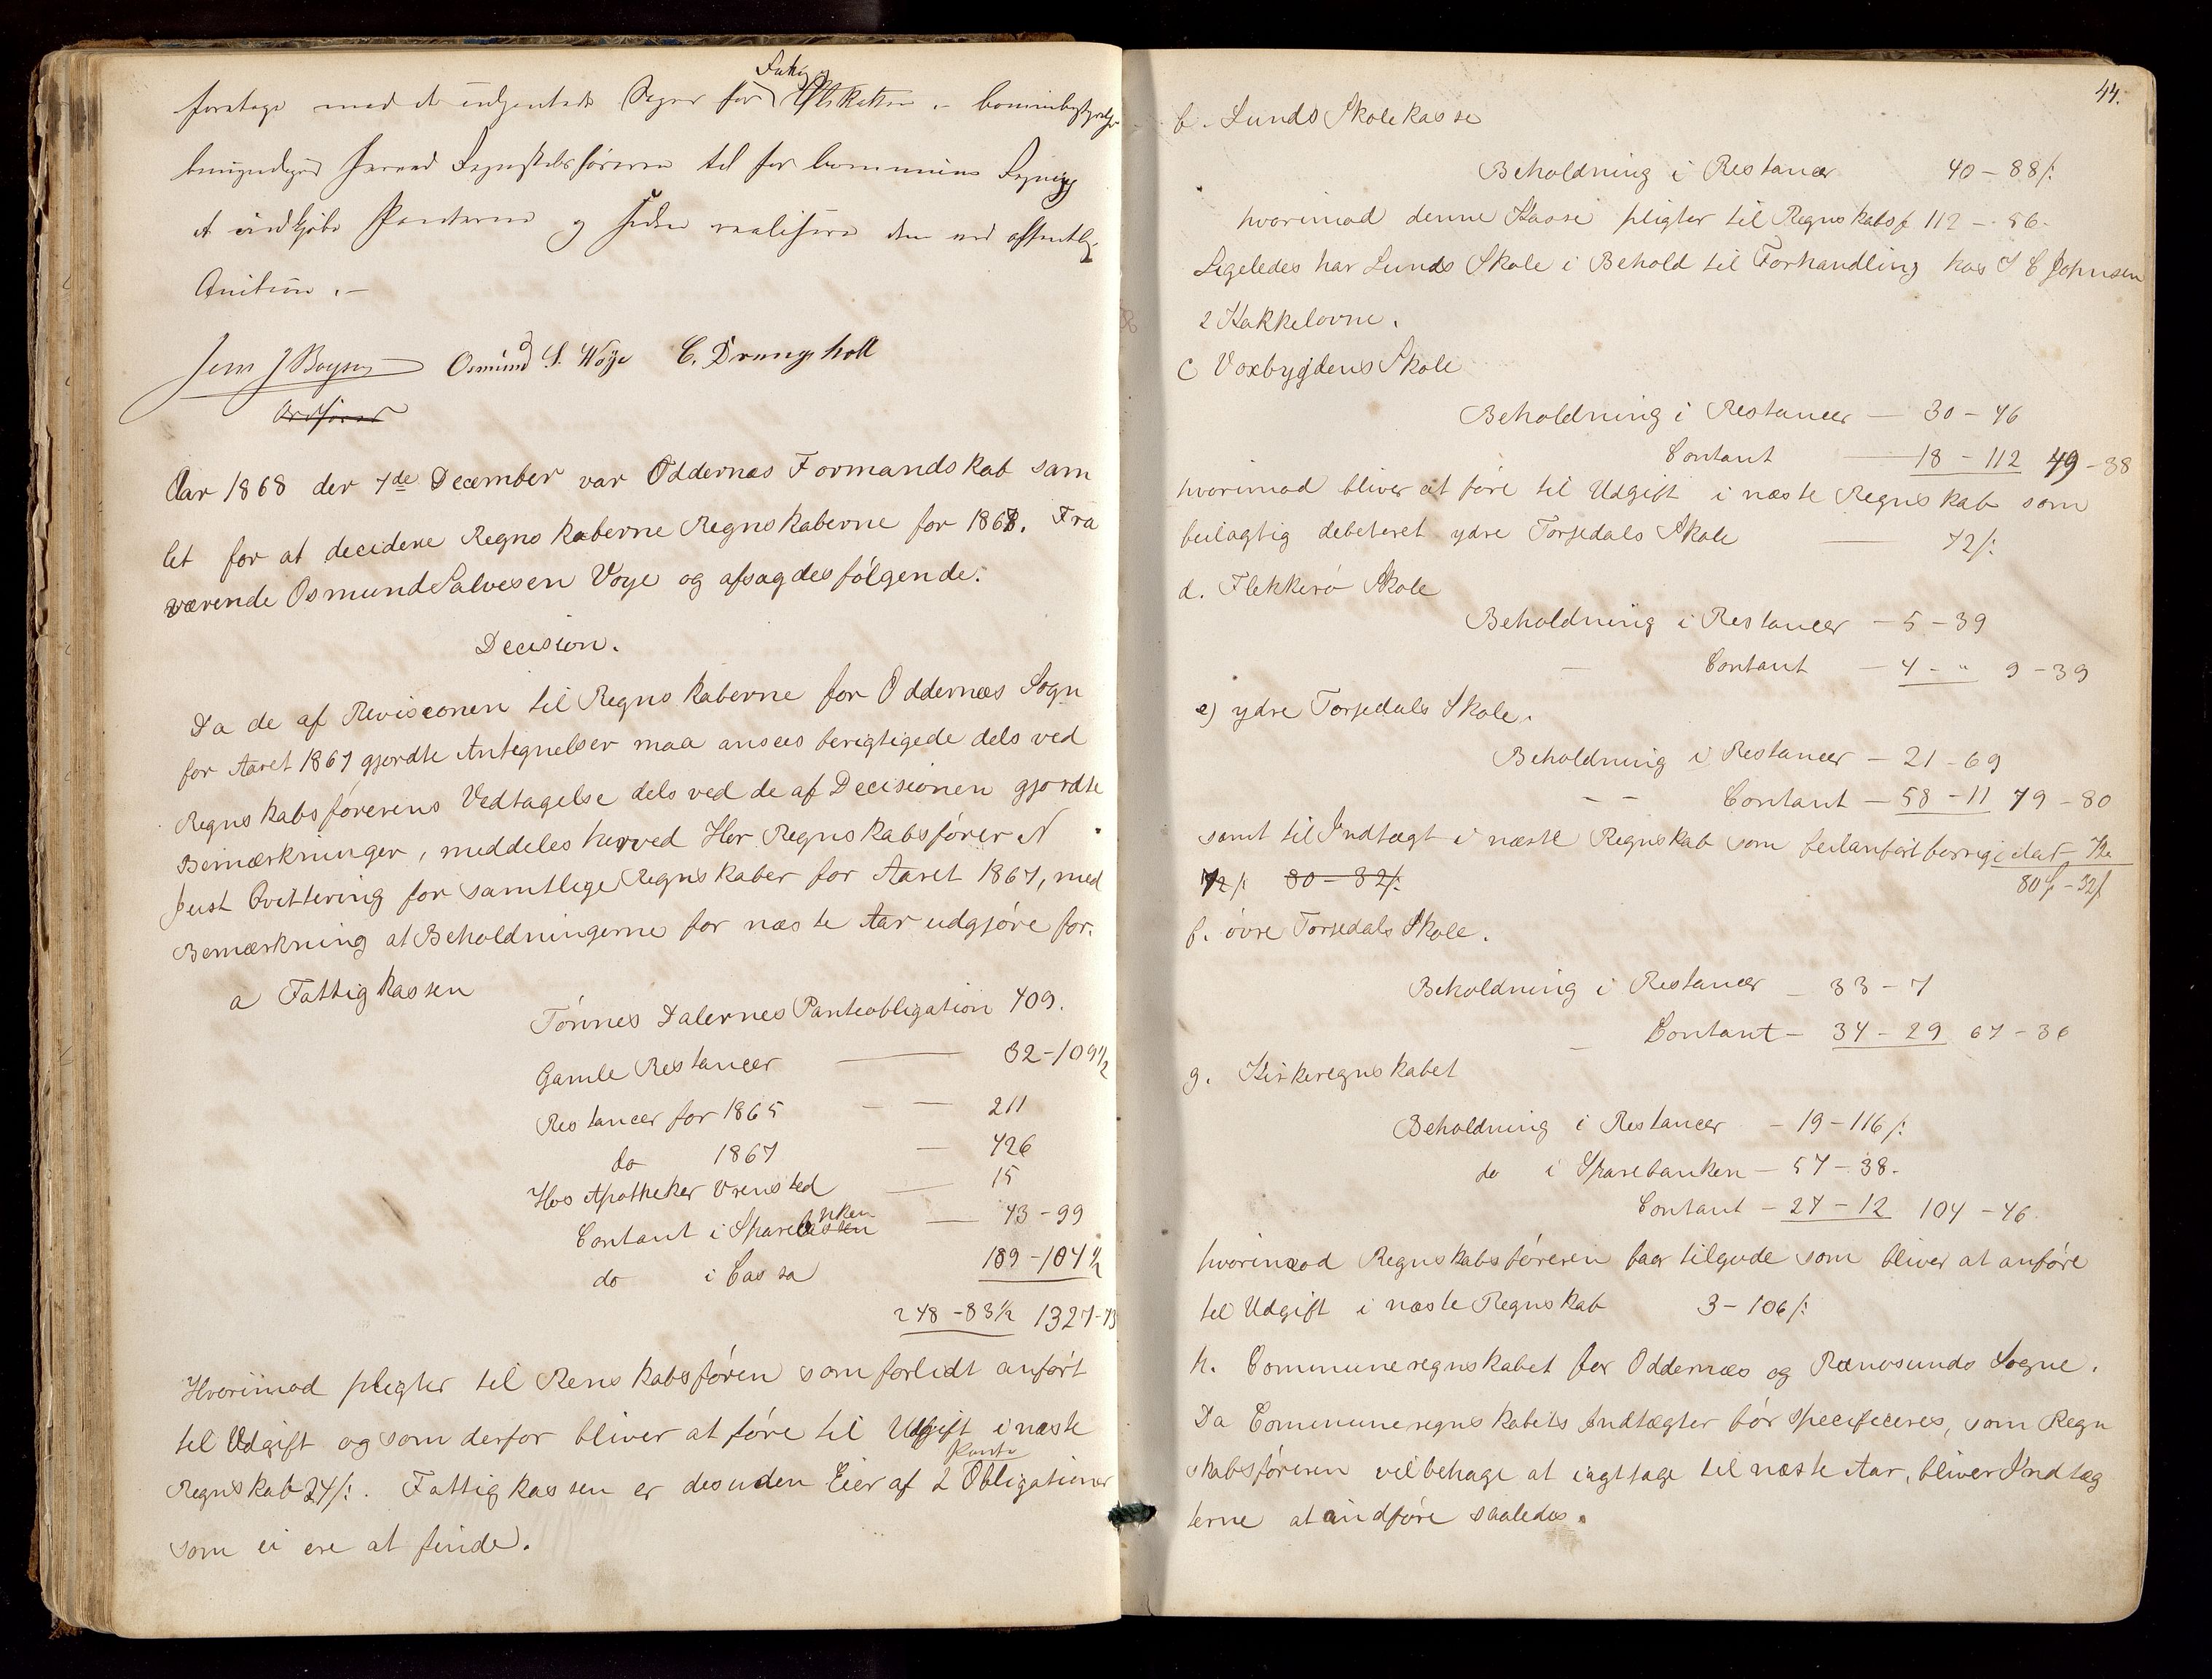 foretage med et udpantede Sager for Fattig Skatten .- Commünbestyrelse
bemyndiges herved Regnskabsføreren til for Commünens Regning
at indkjøbe Panterne og siden realisere dem ved offentlig
Auction .-
Jens J Boysen Osmünd S. Wøye C. Drangsholt
Ordfører
Aar 1868 der 7de December var Oddernæs Formandskab sam
let for at decidere Regnskaberne Regnskaberne for 1867. Fra
værende Osmund Salvesen Voye og afsagdes følgende:
Decision.
Da de af Revisionen til Regnskaberne for Oddernæs Sogn
for Aaret 1867 gjordte Antegnelser maa ansees berigtigede dels ved
Regnskabsførerens Vedtagelse dels ved de af Decisionen gjordte
Bemærkninger, meddeles herved Hr Regnskabsfører N
Just Qvittering for samtlige Regnskaber for Aaret 1867, med
Bemærkning at Beholdningerne for næste Aar udgjøre for.
a Fattigkassen
Tønnes Dalernes Panteobligation 409.
Gamle Restancer — 32-109 1/2
Restancer for 1865 - — 211
do 1867 — 426
Hos Apotheker Vrensted — 15
Contant i Sparebanken — 43-99
do i Cassa 189-104 1/2
248-83 1/2 1327-73
Hvorimod pligter til Renskabsføren som forlidt anført
til Udgift og som derfor bliver at føre til Udgift i næste
Regnskab 24/: . Fattigkassen er desuden Eier af 2 Pante Obligationer
som ei ere at finde.
44.
b. Lunds Skolekasse
Beholdning i Restancer 40-88/:
hvorimod denne Kasse pligter til Regnskabsf 112-56-
Ligeledes har Lunds Skole i Behold til Forhandling hos S C Johnsen
2 Kakkelovne.
c Voxbygdens Skole
Beholdning i Restancer — 30-46
Contant — 18-112 49-38
hvorimod bliver at føre til Udgift i næste Regnskab som
feilagtig debeteret ydre Torsedals Skole — 72/:
d. Flekkerø Skole
Beholdning i Restancer — 5-39
- Contant — 4-" 9-39
e) ydre Torsedals Skole.
Beholdning i Restancer — 21-69
- - Contant — 58-11 79-80
samt til Indtægt i næste Regnskab som feilanført forrige idat 72.
72/: 80-32/: 80 -32/
f. øvre Torsedals Skole.
Beholdning i Restancer — 33-7
- Contant — 34-29 67-36
g. Kirkeregnskabet
Beholdning i Restancer - 19-116/:
do i Sparebanken — 57-38.
Contant — 27-12 104-46.
hvorimod Regnskabsføreren faar tilgode som bliver at anføre
til Udgift i næste Regnskab 3-106/:
h. Communeregnskabet for Oddernæs og Rænosunds Sogne.
Da Communeregnskabets Indtægter bør specificeres, som Regn
skabsføreren vil behage at iagttage til næste Aar, bliver Indtæg
terne at indføre saaledes.